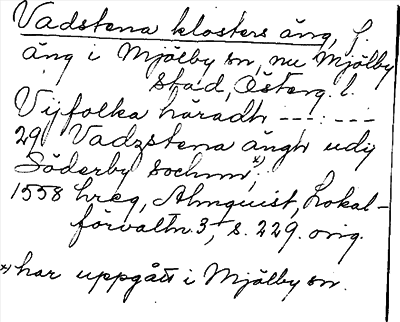 Vadstena klosters äng, f.
äng i Mjölby sn, nu Mjölby
stad, Österg. l.
Vijfolka häradh --- : ---
29 Vadzstena ängh udij
Söderby sochnn x),
1558 hreg, Almquist, Lokal-
förvaltn. 3, s. 229. orig.
x) har uppgått i Mjölby sn.